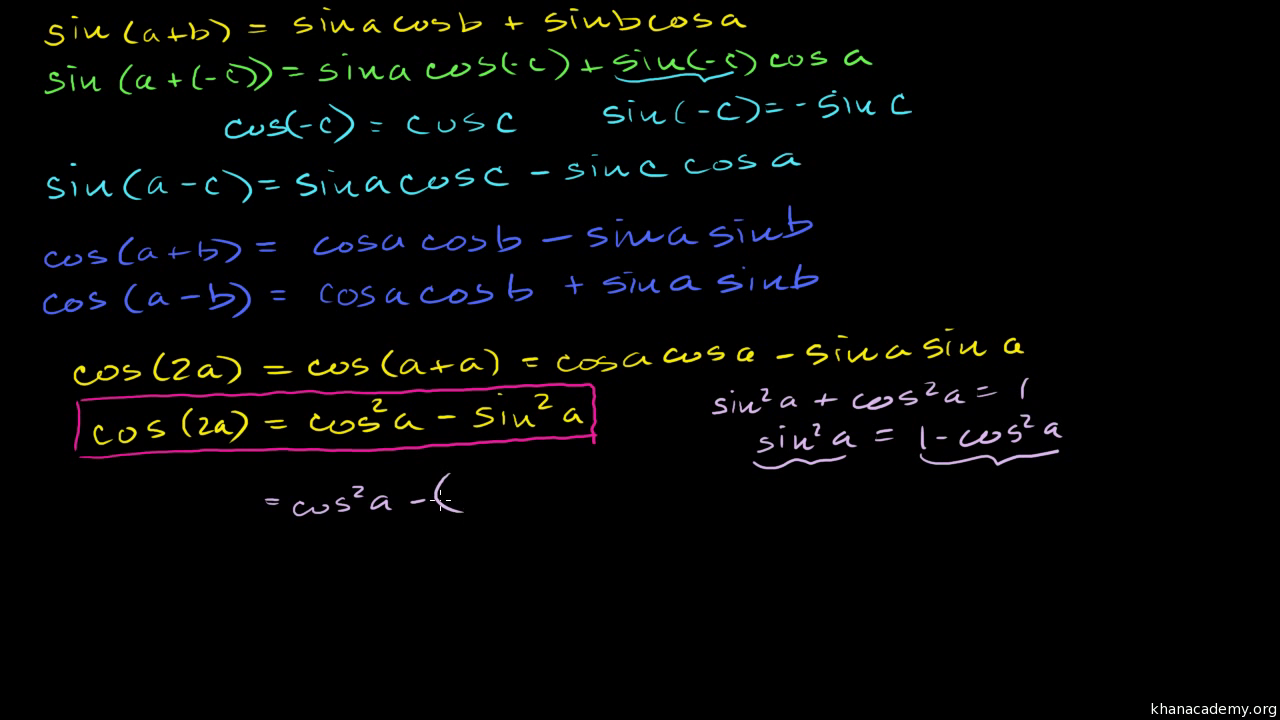 sin(a+b) = sin a cos b + sin b cos a
sin (a+(-c)) = sin a cos(-c) + sin(-c) cos a
cos(-c) = cos c    sin(-c) = - sin c
sin(a-c) = sin a cos c - sin c cos a
cos(a+b) = cos a cos b - sin a sin b
cos (a-b) = cos a cos b + sin a sin b
cos(2a) = cos(a+a) = cos a cos a - sin a sin a
cos(2a) = cos²a - sin²a
sin²a + cos²a = 1
sin²a = 1 - cos²a
= cos²a - (
khanacademy.org